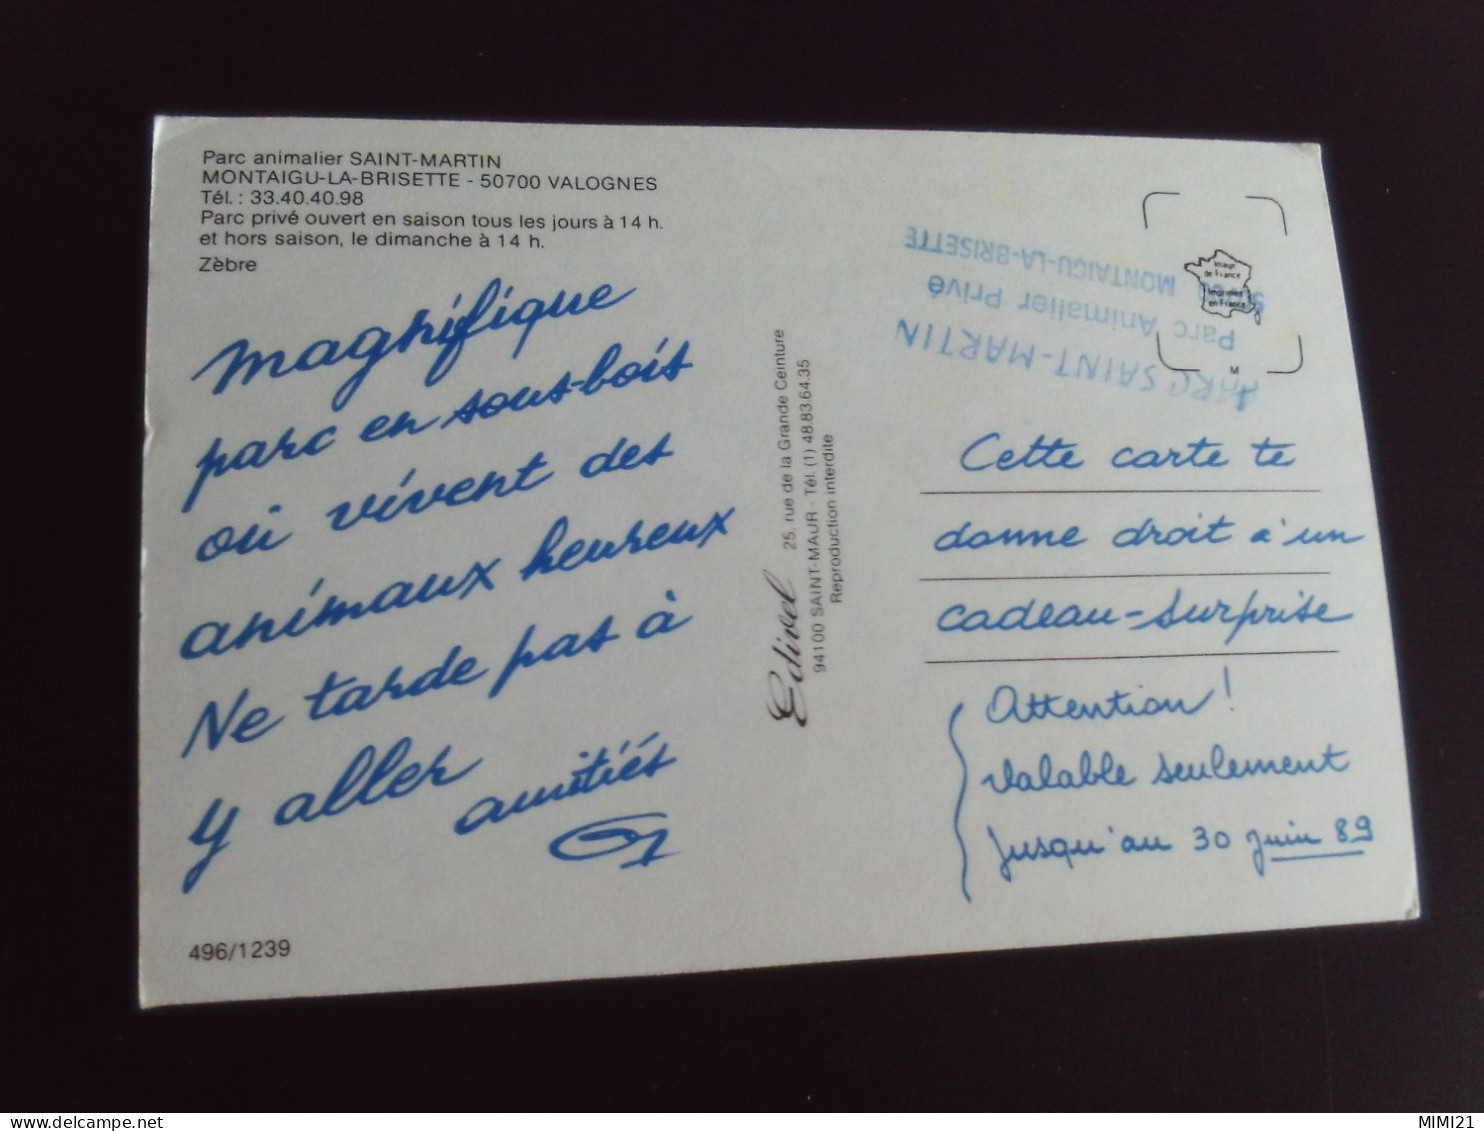 Parc animalier SAINT-MARTIN
MONTAIGU-LA-BRISETTE - 50700 VALOGNES
Tél. : 33.40.40.98
Parc privé ouvert en saison tous les jours à 14 h.
et hors saison, le dimanche à 14 h.
Zèbre
magnifique
parc en sous-bois
où vivent des
animaux heureux
Ne tarde pas à
y aller
amitiés
496/1239
Edivel
25, rue de la Grande Ceinture
94100 SAINT-MAUR - Tél. (1) 48.83.64.35
Reproduction interdite
PARC SAINT-MARTIN
Parc Animalier Privé
MONTAIGU-LA-BRISETTE
de France
Imprimée
en France
M
Cette carte te
donne droit à un
cadeau-surprise
Attention !
valable seulement
jusqu'au 30 juin 89
delcampe.net
MIMI21